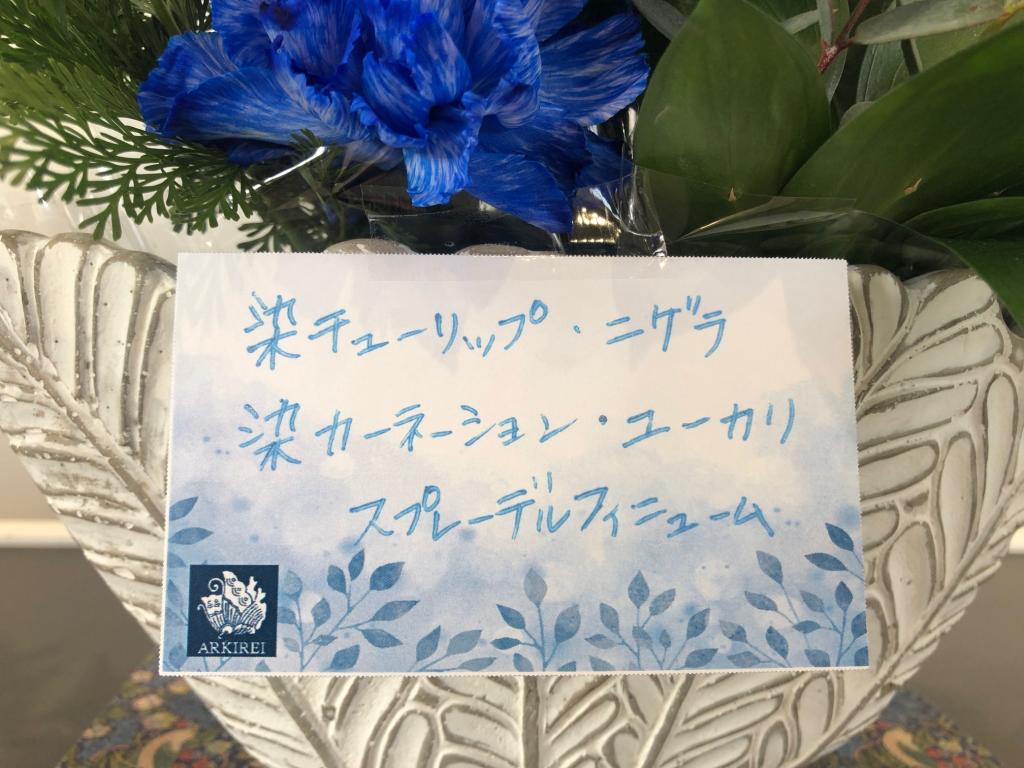 染チューリップ・ニゲラ
染カーネーション・ユーカリ
スプレーデルフィニューム
ARKIREI